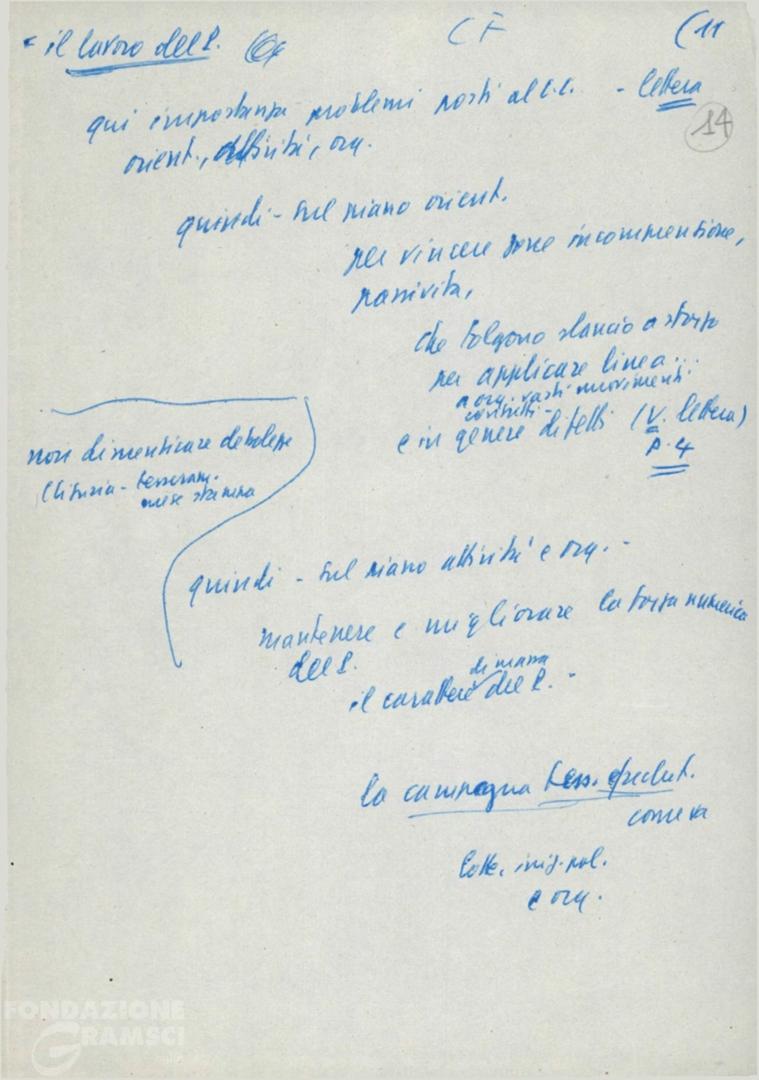 il lavoro del P.
C F
(11
qui importanza problemi posti al C.C. - lettera
14
orient., attività, org.
quindi - sul piano orient.
per vincere zone incomprensione,
passività,
che tolgono slancio a sforzo
per applicare linea...
a org. vasti movimenti
e in genere difetti (V. lettera)
p. 4
non dimenticare debolezze
(Liguria - tesseram.
mese stampa
quindi - sul piano attività e org. -
mantenere e migliorare la forza numerica
del P.
di massa
il carattere del P. -
la campagna tess. e reclut.
come va
lotte, iniz. pol.
e org.
FONDAZIONE
GRAMSCI